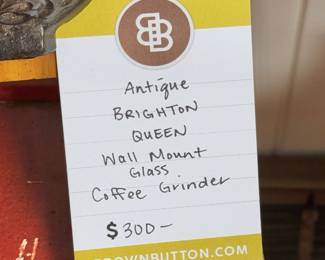 BB
Antique
BRIGHTON
QUEEN
Wall Mount
Glass
Coffee Grinder
$300-
BROWNBUTTON.COM